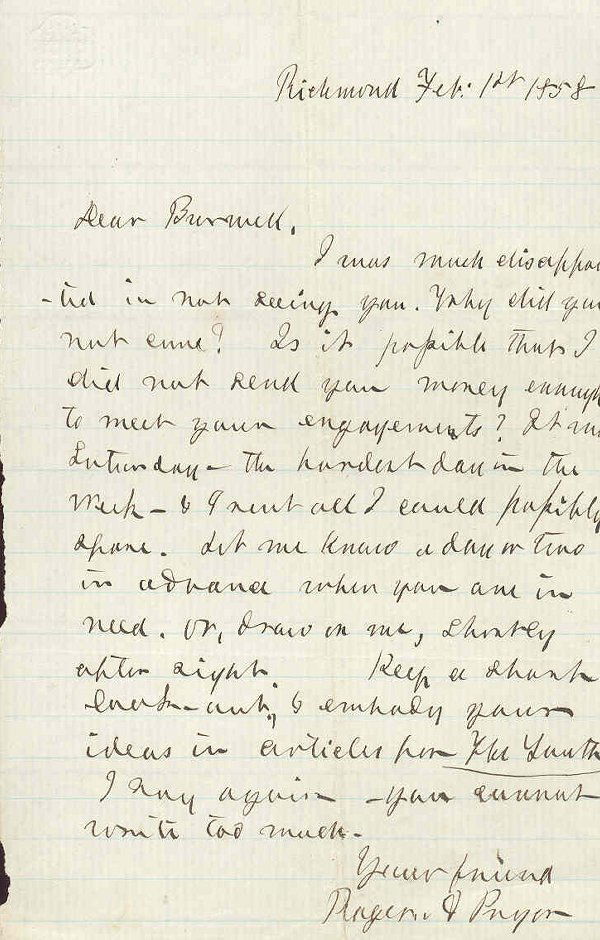 Richmond Feb: 1st 1858
Dear Burwell,
I was much disappoi
-ted in not seeing you. Why did you
not come? Is it possible that I
did not send you money enough
to meet your engagements? It was
Saturday — the hardest day in the
week — & I sent all I could possibly
spare. Let me know a day or two
in advance when you are in
need. Or, draw on me, shortly
after sight. Keep a sharp
look-out, & embody your
ideas in articles for The South
I say again — you cannot
write too much.
Your friend
Roger A Pryor